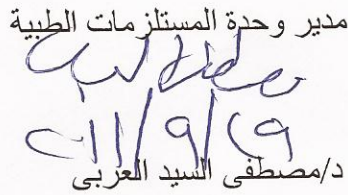 مدير وحدة المستلزمات الطبية
٢٠١١/٩/٢٩
د/مصطفى السيد العربى